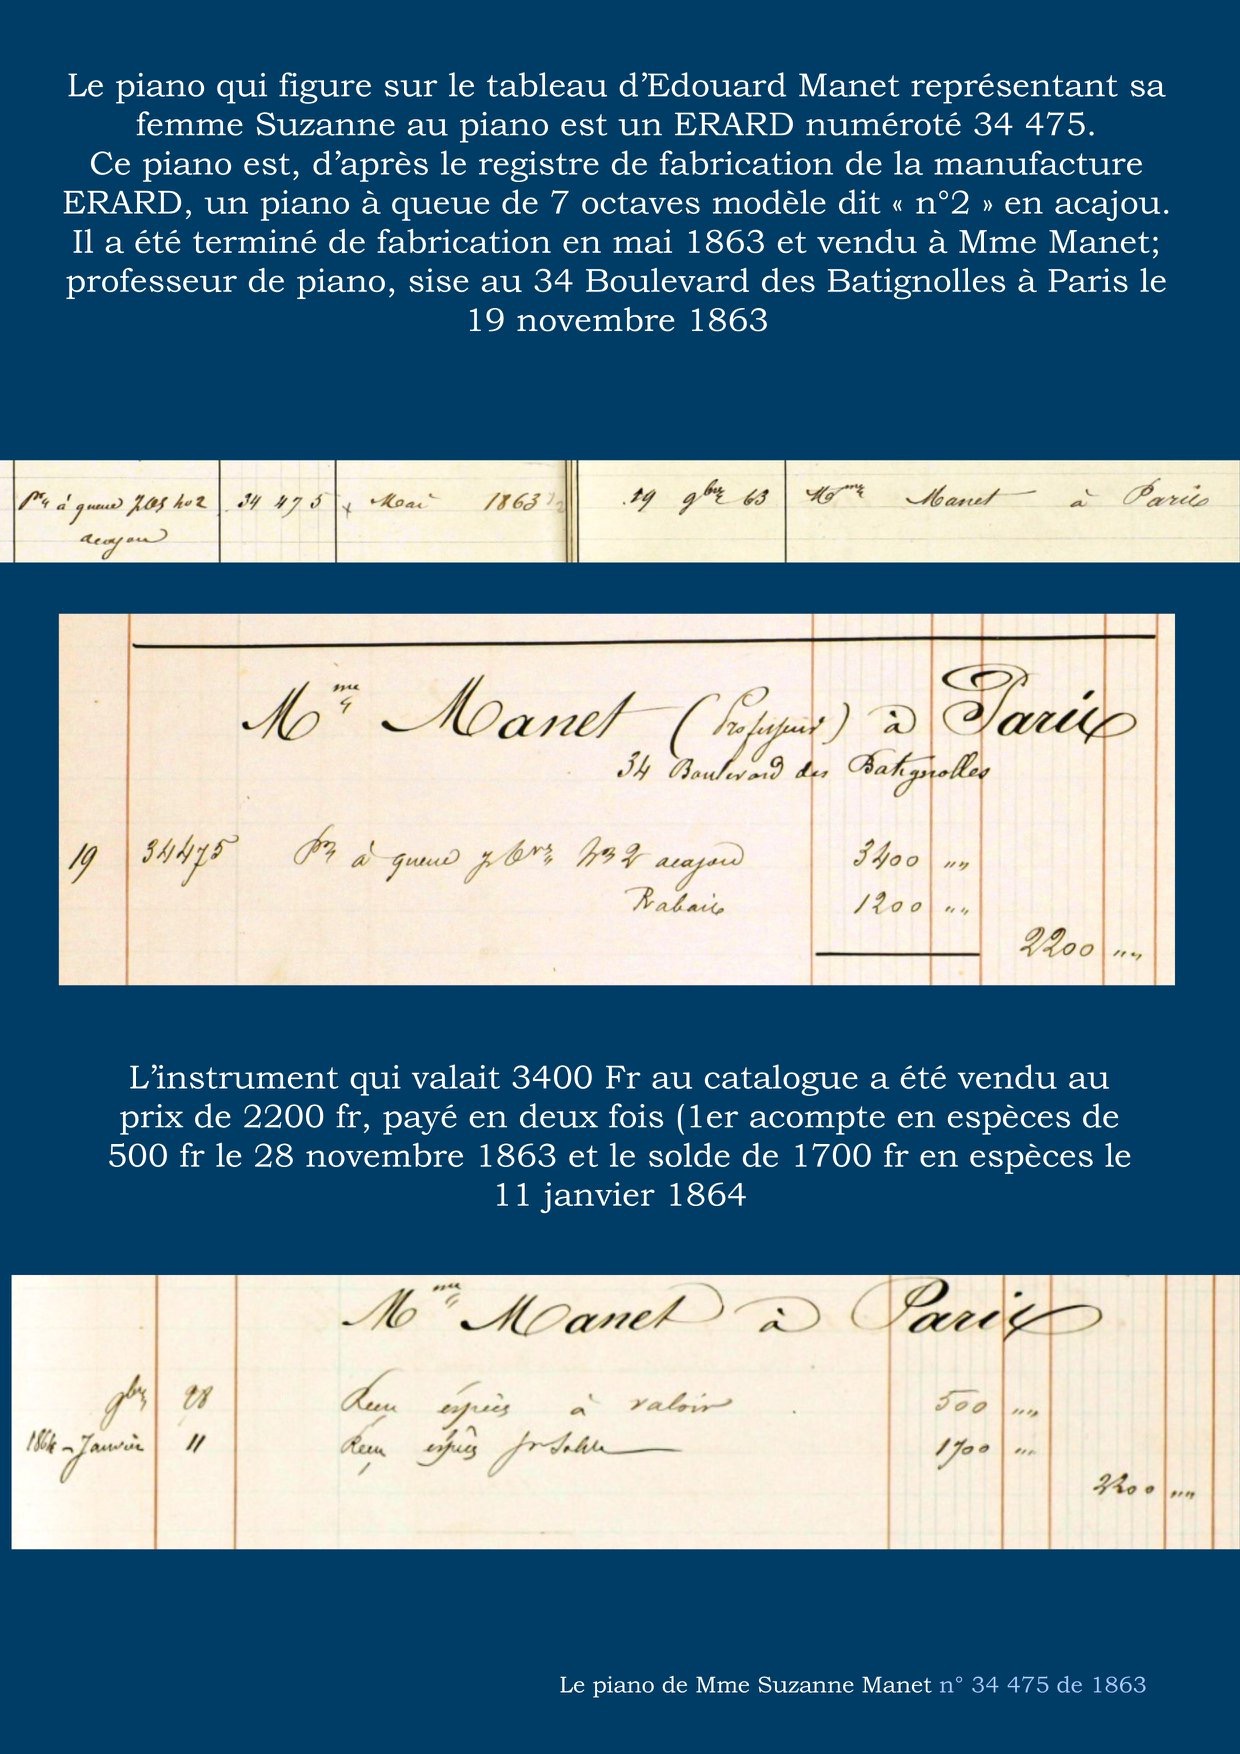 Le piano qui figure sur le tableau d’Edouard Manet représentant sa
femme Suzanne au piano est un ERARD numéroté 34 475.
Ce piano est, d’après le registre de fabrication de la manufacture
ERARD, un piano à queue de 7 octaves modèle dit « n°2 » en acajou.
Il a été terminé de fabrication en mai 1863 et vendu à Mme Manet;
professeur de piano, sise au 34 Boulevard des Batignolles à Paris le
19 novembre 1863
à queue 34 475 Mai 1863 19 9bre 63 Mme Manet à Paris
acajou
Mme Manet (Professeur) à Paris
34 Boulevard des Batignolles
19 34475 à queue 7 8ves No 2 acajou 3400 „„
Rabais 1200 „„
2200 „„
L’instrument qui valait 3400 Fr au catalogue a été vendu au
prix de 2200 fr, payé en deux fois (1er acompte en espèces de
500 fr le 28 novembre 1863 et le solde de 1700 fr en espèces le
11 janvier 1864
Mme Manet à Paris
9bre 28 Reçu espèces à valoir 500 „„
1864 - Janvier 11 Reçu espèces pr Solde 1700 „„
2200 „„
Le piano de Mme Suzanne Manet n° 34 475 de 1863